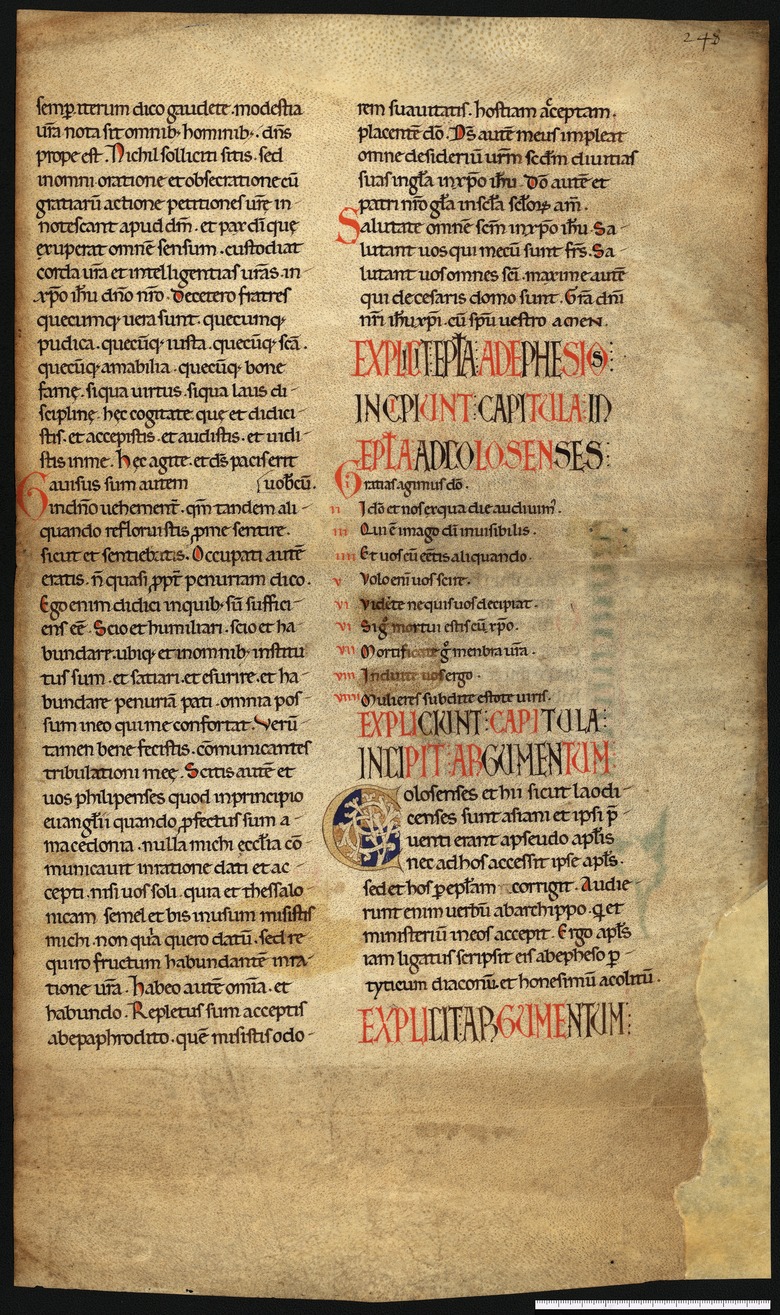 248
semp. iterum dico gaudete. modestia
ur̄a nota sit omnib; hominib;. dn̄s
prope est. Nichil solliciti sitis. sed
inomni oratione et obsecratione cū
gratiarū actione petitiones ur̄ę in-
notescant apud dm̄. et pax dī quę
exuperat omnē sensum. custodiat
corda ur̄a et intelligentias ur̄as. in
xp̄o ih̄u dn̄o nr̄o. Decetero fratres
quecumq; uera sunt. quecumq;
pudica. quecūq; iusta. quecūq; sc̄a.
quecūq; amabilia. quecūq; bone
famę. siqua uirtus. siqua laus di-
sciplinę. hęc cogitate. quę et didici-
stis. et accepistis. et audistis. et uidi-
stis inme. hęc agite. et ds̄ pacis erit
Gauisus sum autem uob̄cū.
indn̄o uehement̄. qm̄ tandem ali-
quando refloruistis ꝓme sentire.
sicut et sentiebatis. Occupati autē
eratis. n̄ quasi ꝓpt̄ penuriam dico.
Ego enim didici inquib; sū suffici-
ens ēē. Scio et humiliari. scio et ha-
bundare. ubiq; et inomnib; institu-
tus sum. et satiari. et esurire. et ha-
bundare. penuriā pati. omnia pos-
sum ineo qui me confortat. Verū-
tamen bene fecistis. cōmunicantes
tribulationi meę. Scitis autē et
uos philipenses quod inprincipio
euangl̄ii quando ꝓfectus sum a-
macedonia. nulla michi ęccl̄ia cō-
municauit inratione dati et ac-
cepti. nisi uos soli. quia et thessalo-
nicam semel et bis inusum misistis
michi. non qͥa quero datū. sed re-
quiro fructum habundantē inra-
tione ur̄a. habeo autē om̄ia. et
habundo. Repletus sum acceptis
abepaphrodito. quē misistis odo-
rem suauitatis. hostiam acceptam.
placentē dō. Ds̄ autē meus impleat
omne desideriū ur̄m scd̄m diuitias
suas ingl̄a inxp̄o ih̄u. Dō autē et
patri nr̄o gl̄a inscl̄a scl̄oꝝ am̄.
Salutate omnē sc̄m inxp̄o ih̄u. Sa-
lutant uos qui mecū sunt fr̄s. Sa-
lutant uos omnes sc̄i. maxime autē
qui decesaris domo sunt. Gr̄a dn̄i
nr̄i ih̄u xp̄i. cū sp̄u uestro AMEN.
EXPLICIT EPL̄A ADEPHESIOS:
INCPIUNT CAPITULA IN
EPL̄A ADCOLOSENSES:
Gratias agimus dō.
ii Idō et nos exqua die audiuim⁹.
iii Qui ē imago dī inuisibilis.
iiii Et uos cū eētis aliquando.
v Volo enī uos scire.
vi Videte ne quis uos decipiat.
vi Sig̊ mortui estis cū xp̄o.
vii Mortificate g̊ menbra ur̄a.
viii Induite uos ergo.
viiii Mulieres subdite estote uiris.
EXPLICIUNT CAPITULA:
INCIPIT ARGUMENTUM:
Colosenses et hii sicut laodi-
censes sunt asiani et ipsi p̄-
uenti erant apseudo apl̄is
nec ad hos accessit ipse apl̄s.
sed et hos ꝑ epl̄am corrigit. Audie-
runt enim uerbū abarchippo. q et
ministeriū ineos accepit. Ergo apl̄s
iam ligatus scripsit eis abepheso ꝑ
tyticum diaconū. et honesimū acolitū.
EXPLICIT: ARGUMENTUM: